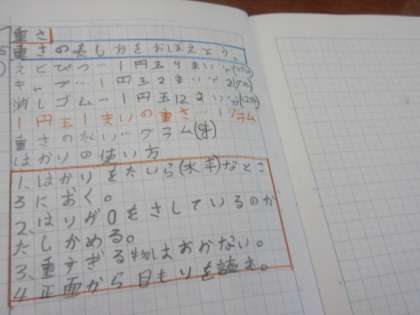 重さ
重さのたしかめをおぼえよう。
えんぴつ…1円玉4まい分(4g)
キャップ…1円玉2まい分2(g)
消しゴム…1円玉12まい分(12g)
1円玉1まいの重さ…1グラム
重さのたんい…グラム(g)
はかりの使い方
1、はかりをたいら(水平)なとこ
ろにおく。
2、はりが0をさしているのか
たしかめる。
3、重すぎる物はおかない。
4、正面から目もりを読む。